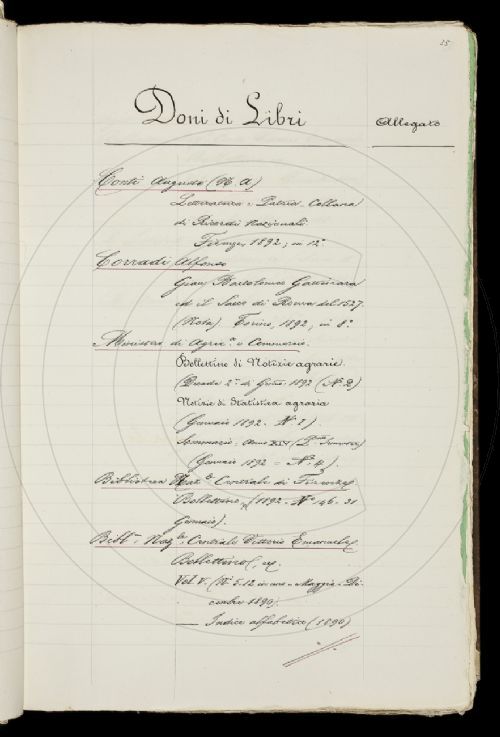 25
Doni di Libri
Allegato
Conti Augusto (N. A)
Letteratura e Patria. Collana
di Ricordi Nazionali
Firenze, 1892; in 12°
Corradi Alfonso
Gian Bartolomeo Gattinara
ed il Sacco di Roma del 1527.
(Nota) Torino, 1892; in 8°
Ministero di Agric.ª e Commercio.
Bollettino di Notizie agrarie.
(Decade 2ª di 1892 (N.
Notizie di Statistica agraria
(Gennaio 1892. N. 1).
Sommario. Anno XIV
(Gennaio 1892 = N. 4).
Biblioteca Naz.le Centrale di Firenze
Bollettino, (1892. N.° 146. 31
Gennaio).
Bibl.ª Naz.le Centrale Vittorio Emanuele
Bollettino,
Vol. V. (N. 5-12 Maggio-Di-
cembre 1890).
— Indice alfabetico (1890)